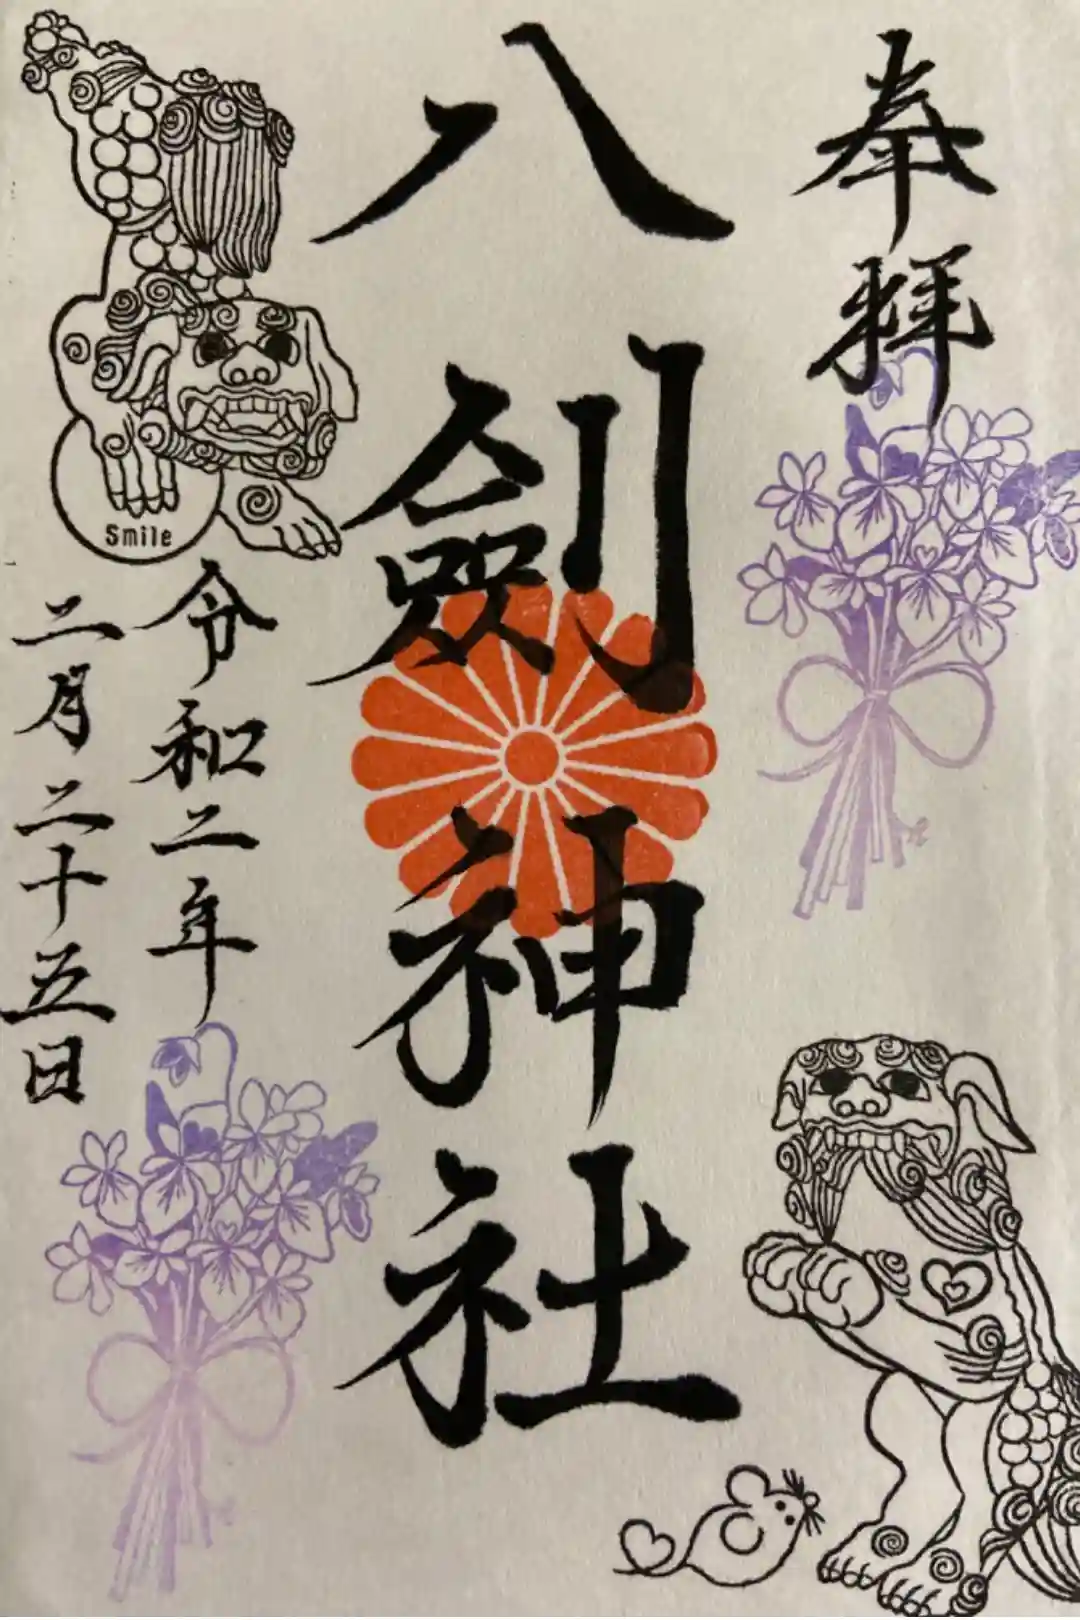 奉拝
八劔神社
令和二年
二月二十五日
Smile